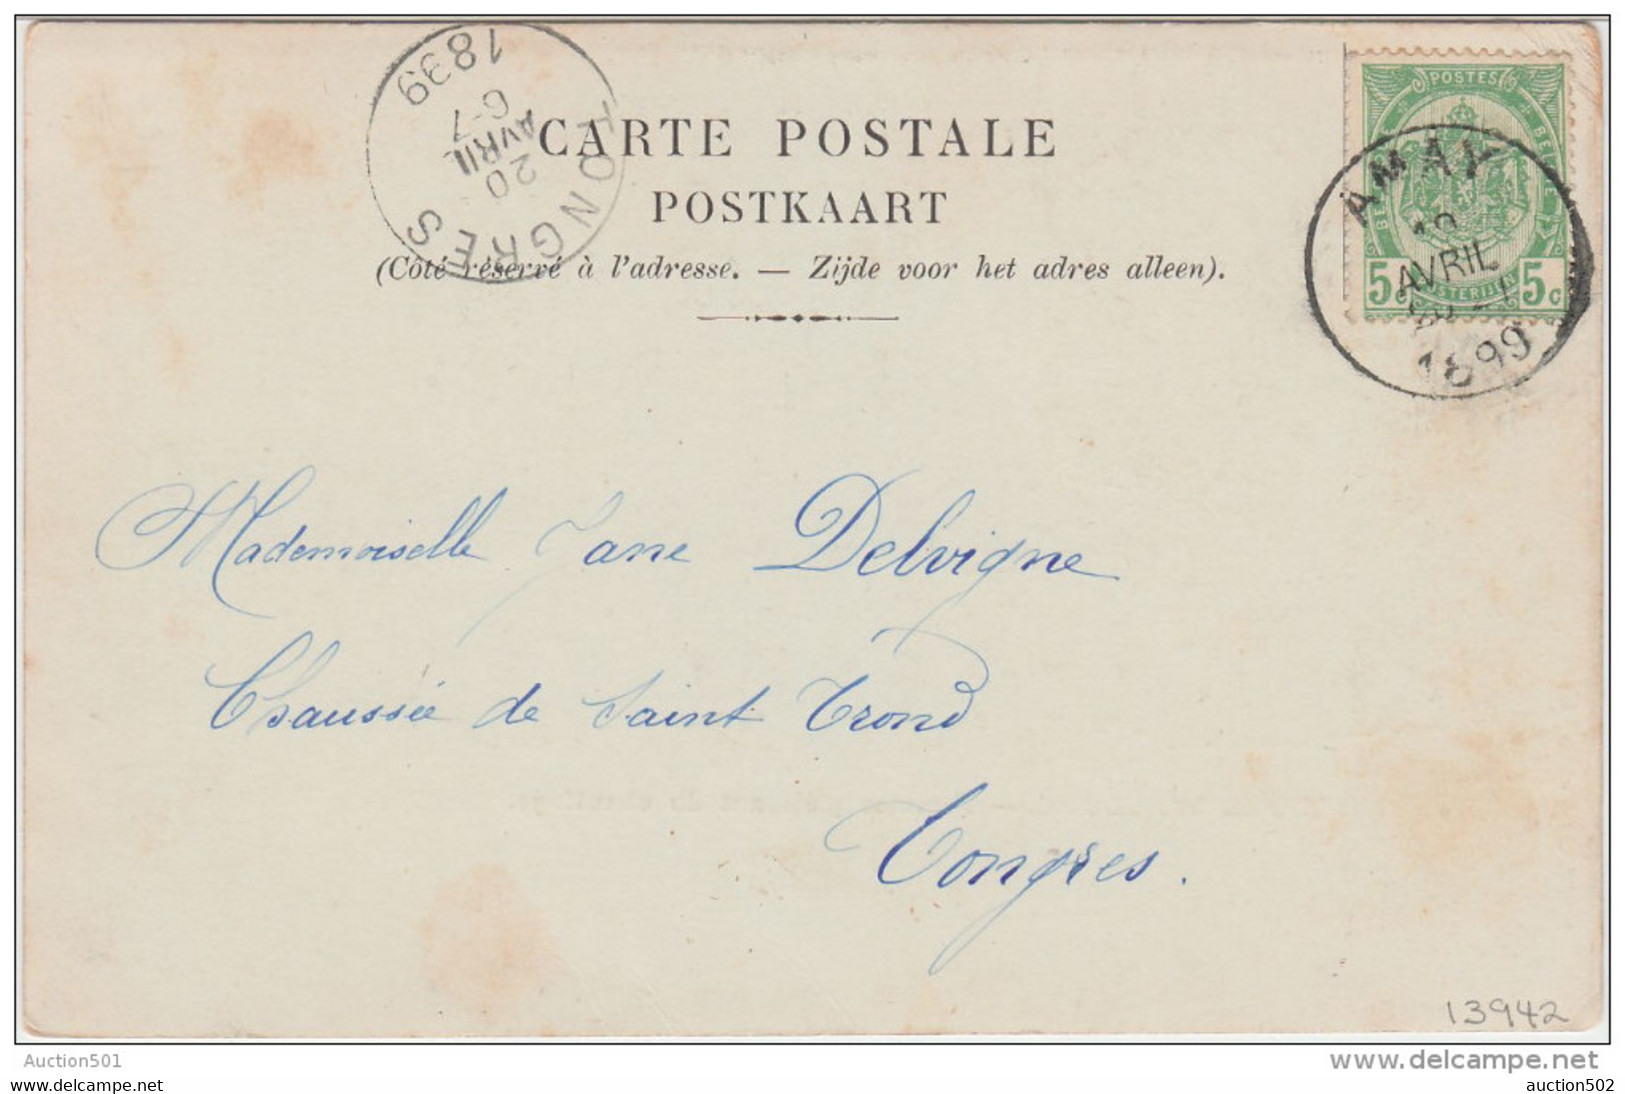 POSTES
BELGIQUE
5 c
5 c
AMAY
19
AVRIL
1899
TONGRES
20
AVRIL
6-7
1899
CARTE POSTALE
POSTKAART
(Côté réservé à l'adresse. — Zijde voor het adres alleen).
Mademoiselle Jane Delvigne
Chaussée de Saint Trond
Tongres.
13942
Auction501
www.delcampe.net
PhilaMercator
auction502